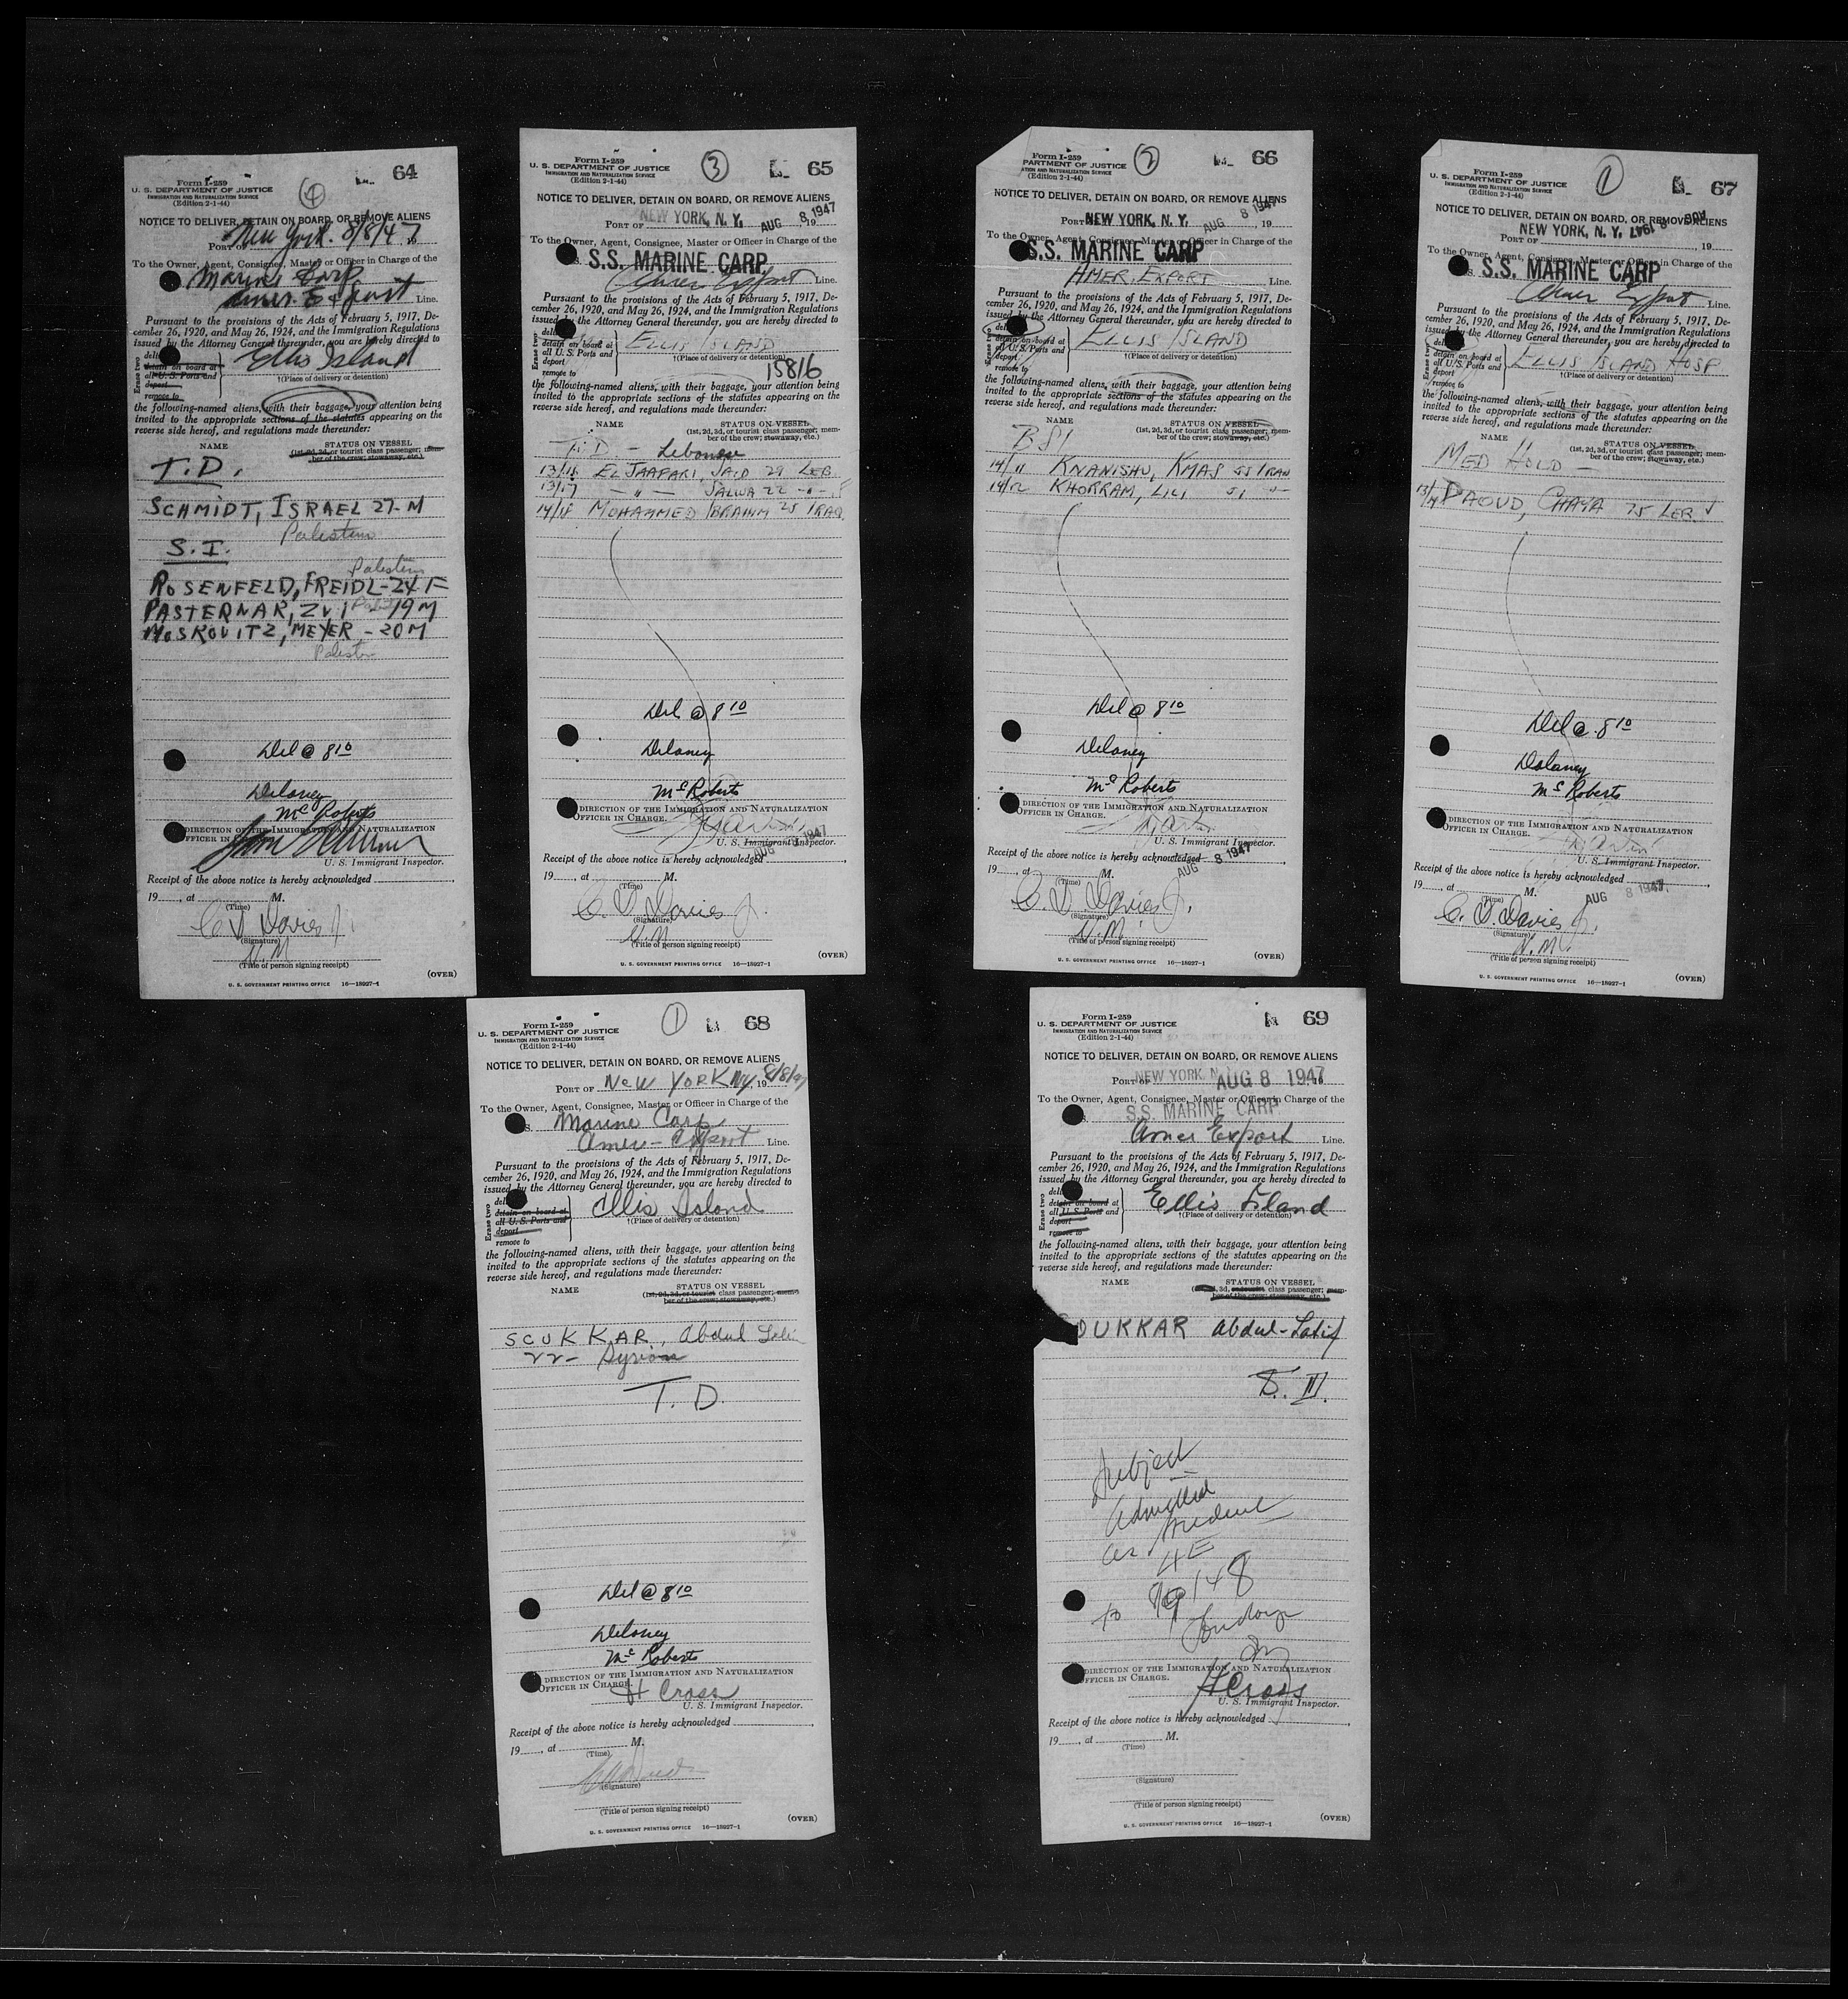 64
Form I-259
U. S. DEPARTMENT OF JUSTICE
IMMIGRATION AND NATURALIZATION SERVICE
(Edition 2-1-44)
4
NOTICE TO DELIVER, DETAIN ON BOARD, OR REMOVE ALIENS
PORT OF New York. 8/8/47 19
To the Owner, Agent, Consignee, Master or Officer in Charge of the
Marine Carp
Amer Export Line.
Pursuant to the provisions of the Acts of February 5, 1917, De-
cember 26, 1920, and May 26, 1924, and the Immigration Regulations
issued by the Attorney General thereunder, you are hereby directed to
Erase two
detain on board at
all U. S. Ports and
deport
remove to
Ellis Island
†(Place of delivery or detention)
the following-named aliens, with their baggage, your attention being
invited to the appropriate sections of the statutes appearing on the
reverse side hereof, and regulations made thereunder:
NAME STATUS ON VESSEL
(1st, 2d, 3d, or tourist class passenger; mem-
ber of the crew; stowaway, etc.)
T.D.
SCHMIDT, ISRAEL 27-M
Palestine
S.I.
Palestine
ROSENFELD, FREIDL-24 F
PASTERNAK, ZVI - 19 M
MOSKOVITZ, MEYER - 20 M
Del @ 8 10
Delaney
McRoberts
DIRECTION OF THE IMMIGRATION AND NATURALIZATION
OFFICER IN CHARGE.
U. S. Immigrant Inspector.
Receipt of the above notice is hereby acknowledged
19 , at M.
(Time)
C. D. Davies Jr.
(Signature)
(Title of person signing receipt)
(OVER)
U. S. GOVERNMENT PRINTING OFFICE 16—18927-1
65
Form I-259
U. S. DEPARTMENT OF JUSTICE
IMMIGRATION AND NATURALIZATION SERVICE
(Edition 2-1-44)
3
NOTICE TO DELIVER, DETAIN ON BOARD, OR REMOVE ALIENS
PORT OF NEW YORK, N. Y. AUG 8 1947 19
To the Owner, Agent, Consignee, Master or Officer in Charge of the
S.S. MARINE CARP
Amer Export Line.
Pursuant to the provisions of the Acts of February 5, 1917, De-
cember 26, 1920, and May 26, 1924, and the Immigration Regulations
issued by the Attorney General thereunder, you are hereby directed to
Erase two
detain on board at
all U. S. Ports and
deport
remove to
ELLIS ISLAND
†(Place of delivery or detention)
15816
the following-named aliens, with their baggage, your attention being
invited to the appropriate sections of the statutes appearing on the
reverse side hereof, and regulations made thereunder:
NAME STATUS ON VESSEL
(1st, 2d, 3d, or tourist class passenger; mem-
ber of the crew; stowaway, etc.)
T.D. - Lebanese
13/16 EL JAAFARI, SAID 29 LEB
13/17 - " - SALWA 22 - " - F
14/18 MOHAMMED IBRAHIM 25 IRAQ
Del @ 8 10
Delaney
McRoberts
DIRECTION OF THE IMMIGRATION AND NATURALIZATION
OFFICER IN CHARGE.
U. S. Immigrant Inspector.
AUG 8 1947
Receipt of the above notice is hereby acknowledged
19 , at M.
(Time)
C. D. Davies Jr.
(Signature)
(Title of person signing receipt)
(OVER)
U. S. GOVERNMENT PRINTING OFFICE 16—18927-1
66
Form I-259
PARTMENT OF JUSTICE
ATION AND NATURALIZATION SERVICE
(Edition 2-1-44)
2
NOTICE TO DELIVER, DETAIN ON BOARD, OR REMOVE ALIENS
PORT NEW YORK, N. Y. AUG 8 1947 , 19
To the Owner, Agent, Consignee, Master or Officer in Charge of the
S.S. MARINE CARP
AMER EXPORT Line.
Pursuant to the provisions of the Acts of February 5, 1917, De-
cember 26, 1920, and May 26, 1924, and the Immigration Regulations
issued by the Attorney General thereunder, you are hereby directed to
Erase two
detain on board at
all U. S. Ports and
deport
remove to
ELLIS ISLAND
†(Place of delivery or detention)
the following-named aliens, with their baggage, your attention being
invited to the appropriate sections of the statutes appearing on the
reverse side hereof, and regulations made thereunder:
NAME STATUS ON VESSEL
(1st, 2d, 3d, or tourist class passenger; mem-
ber of the crew; stowaway, etc.)
BSI
14/11 KNANISHU, KMAS 55 IRAN
14/12 KHORRAM, LILI 51 - " -
Del @ 8 10
Delaney
McRoberts
DIRECTION OF THE IMMIGRATION AND NATURALIZATION
OFFICER IN CHARGE.
U. S. Immigrant Inspector.
Receipt of the above notice is hereby acknowledged
AUG 8 1947
19 , at M.
(Time)
C. D. Davies Jr.
(Signature)
(Title of person signing receipt)
(OVER)
U. S. GOVERNMENT PRINTING OFFICE 16—18927-1
67
Form I-259
U. S. DEPARTMENT OF JUSTICE
IMMIGRATION AND NATURALIZATION SERVICE
(Edition 2-1-44)
1
NOTICE TO DELIVER, DETAIN ON BOARD, OR REMOVE ALIENS
NEW YORK, N. Y. AUG 8 1947
PORT OF , 19
To the Owner, Agent, Consignee, Master or Officer in Charge of the
S.S. MARINE CARP
Amer Export Line.
Pursuant to the provisions of the Acts of February 5, 1917, De-
cember 26, 1920, and May 26, 1924, and the Immigration Regulations
issued by the Attorney General thereunder, you are hereby directed to
Erase two
detain on board at
all U. S. Ports and
deport
remove to
ELLIS ISLAND HOSP
†(Place of delivery or detention)
the following-named aliens, with their baggage, your attention being
invited to the appropriate sections of the statutes appearing on the
reverse side hereof, and regulations made thereunder:
NAME STATUS ON VESSEL
(1st, 2d, 3d, or tourist class passenger; mem-
ber of the crew; stowaway, etc.)
MED HOLD -
13/14 DAOUD, CHAYA 75 LEB.
Del @ 8 10
Delaney
McRoberts
DIRECTION OF THE IMMIGRATION AND NATURALIZATION
OFFICER IN CHARGE.
U. S. Immigrant Inspector.
Receipt of the above notice is hereby acknowledged
19 , at M. AUG 8 1947
(Time)
C. D. Davies Jr.
(Signature)
(Title of person signing receipt)
(OVER)
U. S. GOVERNMENT PRINTING OFFICE 16—18927-1
68
Form I-259
U. S. DEPARTMENT OF JUSTICE
IMMIGRATION AND NATURALIZATION SERVICE
(Edition 2-1-44)
1
NOTICE TO DELIVER, DETAIN ON BOARD, OR REMOVE ALIENS
PORT OF New YORK NY, 19 8/8/47
To the Owner, Agent, Consignee, Master or Officer in Charge of the
S. Marine Carp
Amer - Export Line.
Pursuant to the provisions of the Acts of February 5, 1917, De-
cember 26, 1920, and May 26, 1924, and the Immigration Regulations
issued by the Attorney General thereunder, you are hereby directed to
Erase two
detain on board at
all U. S. Ports and
deport
remove to
Ellis Island
†(Place of delivery or detention)
the following-named aliens, with their baggage, your attention being
invited to the appropriate sections of the statutes appearing on the
reverse side hereof, and regulations made thereunder:
NAME STATUS ON VESSEL
(1st, 2d, 3d, or tourist class passenger; mem-
ber of the crew; stowaway, etc.)
SCUKKAR, Abdul
22 - Syrian
T. D.
Del @ 8 10
Delaney
McRoberts
DIRECTION OF THE IMMIGRATION AND NATURALIZATION
OFFICER IN CHARGE.
H Cross
U. S. Immigrant Inspector.
Receipt of the above notice is hereby acknowledged
19 , at M.
(Time)
(Signature)
(Title of person signing receipt)
(OVER)
U. S. GOVERNMENT PRINTING OFFICE 16—18927-1
69
Form I-259
U. S. DEPARTMENT OF JUSTICE
IMMIGRATION AND NATURALIZATION SERVICE
(Edition 2-1-44)
NOTICE TO DELIVER, DETAIN ON BOARD, OR REMOVE ALIENS
PORT OF NEW YORK, N. AUG 8 1947 19
To the Owner, Agent, Consignee, Master or Officer in Charge of the
S.S. MARINE CARP
Amer Export Line.
Pursuant to the provisions of the Acts of February 5, 1917, De-
cember 26, 1920, and May 26, 1924, and the Immigration Regulations
issued by the Attorney General thereunder, you are hereby directed to
Erase two
detain on board at
all U. S. Ports and
deport
remove to
Ellis Island
†(Place of delivery or detention)
the following-named aliens, with their baggage, your attention being
invited to the appropriate sections of the statutes appearing on the
reverse side hereof, and regulations made thereunder:
NAME STATUS ON VESSEL
3d, or tourist class passenger; mem-
ber of the crew; stowaway, etc.)
OUKKAR Abdul-Latif
Subject
admitted
as student
4E
to 8/9/48
DIRECTION OF THE IMMIGRATION AND NATURALIZATION
OFFICER IN CHARGE.
H Cross
U. S. Immigrant Inspector.
Receipt of the above notice is hereby acknowledged
19 , at M.
(Time)
(Signature)
(Title of person signing receipt)
(OVER)
U. S. GOVERNMENT PRINTING OFFICE 16—18927-1